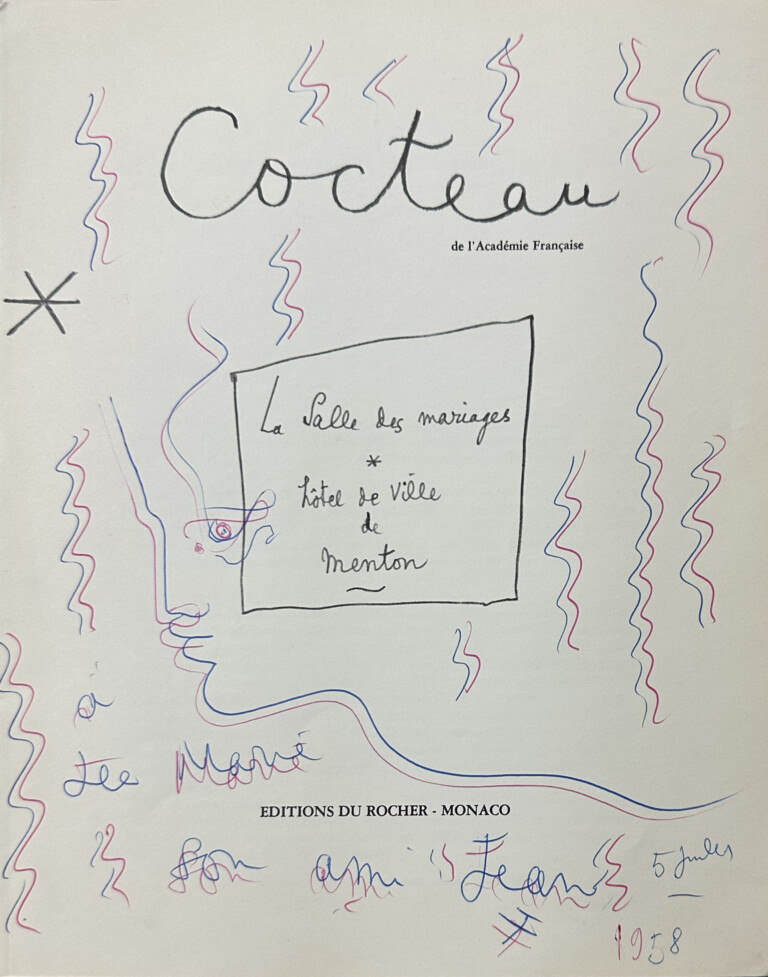 Cocteau
de l'Académie Française
La Salle des mariages
*
hôtel de ville
de
menton
à
son ami Jean
EDITIONS DU ROCHER - MONACO
5
1958